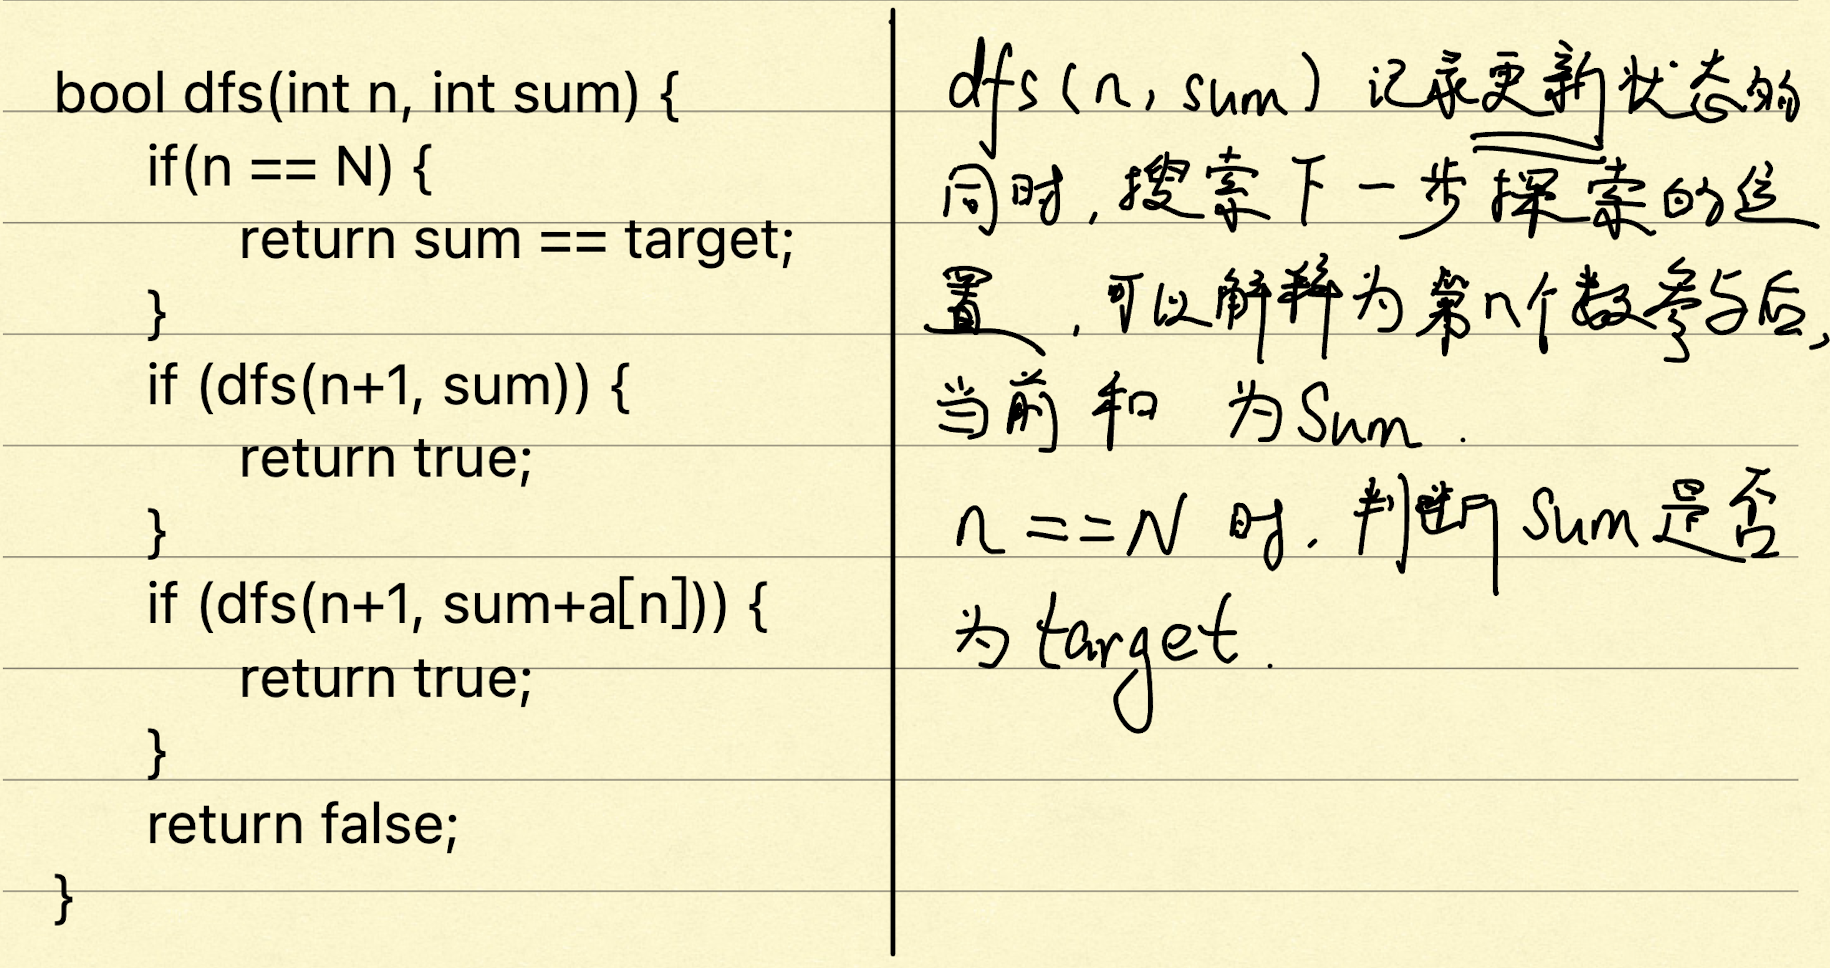 bool dfs(int n, int sum) {
if(n == N) {
return sum == target;
}
if (dfs(n+1, sum)) {
return true;
}
if (dfs(n+1, sum+a[n])) {
return true;
}
return false;
}
dfs(n, sum) 记录更新状态的
同时,搜索下一步探索的位
置,可以解释为第n个数参与后,
当前和 为Sum.
n==N 时.判断Sum是否
为target.